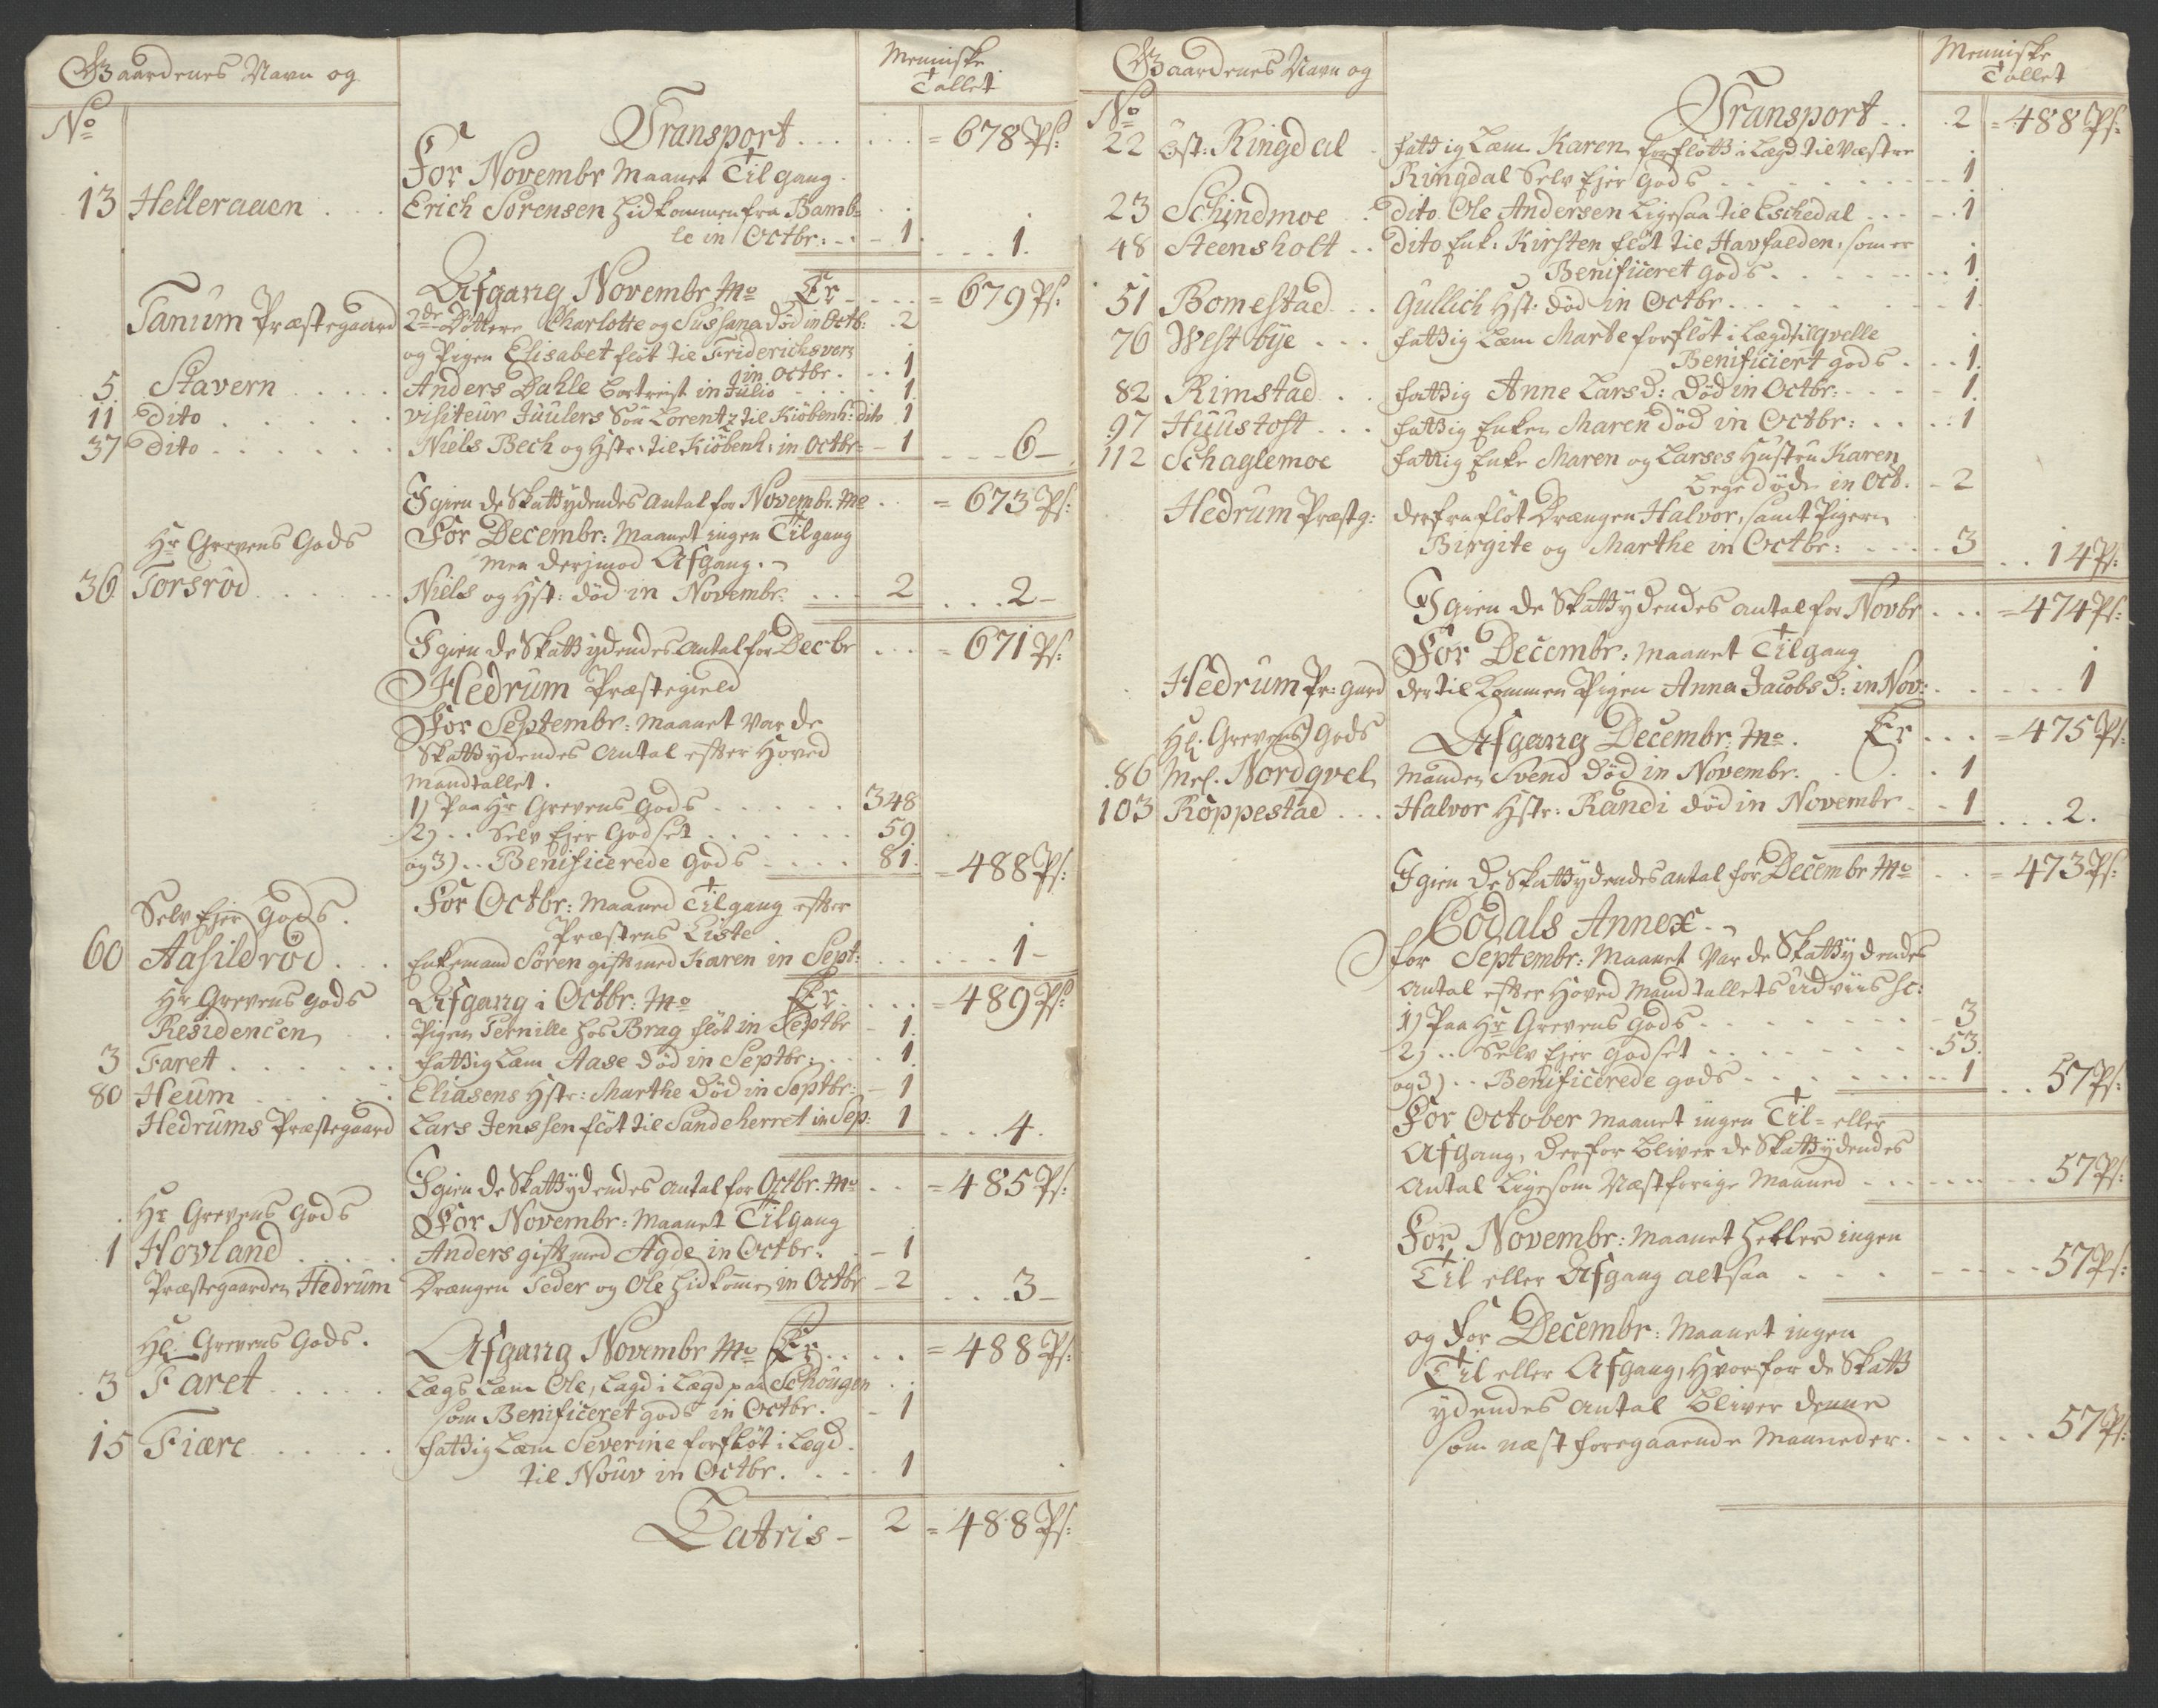 Gaardenes Navn og
Menniske
Tallet
No
Transport . . . . . . = 678 Ps:
For Novembr Maanet Tilgang.
13 Helleraaen . . . Erich Sörensen hidkommen fra Bamb=
le in Octbr: . . - 1. . . . 1.
Afgang Novembr Mo Er . . . . = 679 Ps:
Tanum Præstegaard 2de Döttere Charlotte og Sussana död in Octb: . 2
og Pigen Elisabet flöt til Friderichsvern
in Octbr. . . 1
5. Stavern . . . . Anders Dahle bortreist in Julio . . . 1
11 Dito . . . . . Visiteur Juulers Sön Lorentz til Kiöbenh: dito 1
37 Dito . . . . . . Niels Bech og Hstr: til Kiöbenh: in Octbr= - 1 . . . 6 -
Igien de Skattydendes Antal for Novembr. Mo . . = 673 Ps:
Hr Grevens Gods For Decembr: Maanet ingen Tilgang
men derjmod Afgang.
36 Torsröd . . . . . Niels og Hst: död in Novembr. . . . 2 . . . 2 -
Igien de Skattydendes Antal for Decbr . . . = 671 Ps:
Hedrum Præstegield
For Septembr: Maanet var de
Skattydendes Antal efter Hoved
Mandtallet.
1) Paa Hr Grevens Gods . . . . . 348
2) . . Selv Ejer Godset . . . . . . 59
og 3) . . Benificerede Gods . . . . 81. = 488 Ps:
Selv Ejer Gods. For Octbr: Maaned Tilgang efter
Præstens Liste
60 Aasildröd . . . Enkemand Sören gift med Karen in Sept: . . . . . 1 -
Hr Grevens gods Afgang i Octbr: Mo Er . . . . = 489 Ps:
Residencen . . Pigen Pernille hos Brag flöt in Septbr - 1.
3 Faret . . . . . . fattig Lem Aase död in Septbr: . . . 1.
80 Heum . . . . . . Eliasens Hstr: Marthe död in Septbr: - 1
Hedrums Præstegaard Lars Jenssen flöt til Sandeherret in Sep: 1 . . . 4.
Igien de Skattydendes Antal for Octbr. Mo . . = 485 Ps:
Hr Grevens Gods For Novembr: Maanet Tilgang
1 Hovland . . . . . Anders gift med Agde in Octbr: . - 1
Præstegaarden Hedrum Drængen Peder og Ole hidkomen in Octbr - 2 . . . 3 -
Hl: Grevens Gods. Afgang Novembr Mo Er . . . . = 488 Ps:
3 Faret . . . . . Lægs Lem Ole, lagd i Lægd paa Schougen
som Benificeret gods in Octbr. . - 1
15 Fiære . . . . . fattig Lem Severine forflöt i Lægd.
til Nouv in Octbr. . . . 1
Latris - 2 = 488 Ps:
Gaardenes Navn og
Menniske
Tallet
No
Transport . . . 2 = 488 Ps:
22 Öst: Ringdal . fattig Lem Karen forflött i Lægd til Vestre
Ringdal Selv Ejer Gods . . . . . . . 1
23 Schindmoe . . dito Ole Andersen ligesaa til Eschedal . . . . 1
48 Steensholt . . dito Enk: Kirsten flöt til Havfalden, som er
Benificeret gods . . . . . . . 1
51 Bomestad . . . Gullich Hst: död in Octbr . . . . . . . 1
76 Westbye . . . fattig Lem Marte forflöt i Lægd til Qvelle
Benificiert gods . . . . 1
82 Rimstad . . fattig Anne Larsd: död in Octbr: . . . . 1
97 Huustoft . . . fattig Enken Maren död in Octbr: . . . . 1
112 Schaglemoe fattig Enke Maren og Larses Hustru Karen
bege döde in Oct. - 2
Hedrum Præstg: derfra flöt Drængen Halvor, samt Pigern
Birgite og Marthe in Octbr: . . . . 3 . . 14 Ps:
Igien de Skattydendes antal for Novbr . . . = 474 Ps:
For Decembr: Maanet Tilgang
Hedrum Pr: Gard dertil kommen Pigen Anna Jacobs D: in Nov: . . . . . . 1
Hl. Grevens Gods Afgang Decembr: Mo. Er . . . = 475 Ps:
86 Mel. Nordqvel Manden Svend död in Novembr. . . . . 1
103 Roppestad . . . Halvor Hstr: Randi död in Novembr . - 1 . . . 2.
Igien de Skattydendes antal for Decembr Mo . . = 473 Ps:
Kodals Annex.
for Septembr: Maanet var de Skattydendes
Antal efter Hoved Mandtallets Udviis sc:
1) Paa Hr Grevens Gods . . . . . . . - 3
2) . . Selv Ejer godset . . . . . . . . 53.
og 3) . . Benificerede gods . . . . . . . . 1 . . 57 Ps:
For October Maanet ingen Til= eller
Afgang, derfor bliver de Skattydendes
Antal ligesom Næstforige Maaned . . . . . . . . 57 Ps:
For Novembr: Maanet heller ingen
Til eller Afgang altsaa . . . . . . . . . 57 Ps:
og for Decembr: Maanet ingen
Til eller Afgang, hvorfor de Skatt
ydendes Antal bliver denne
som næst foregaaende Maaneder . . . . . . 57 Ps: